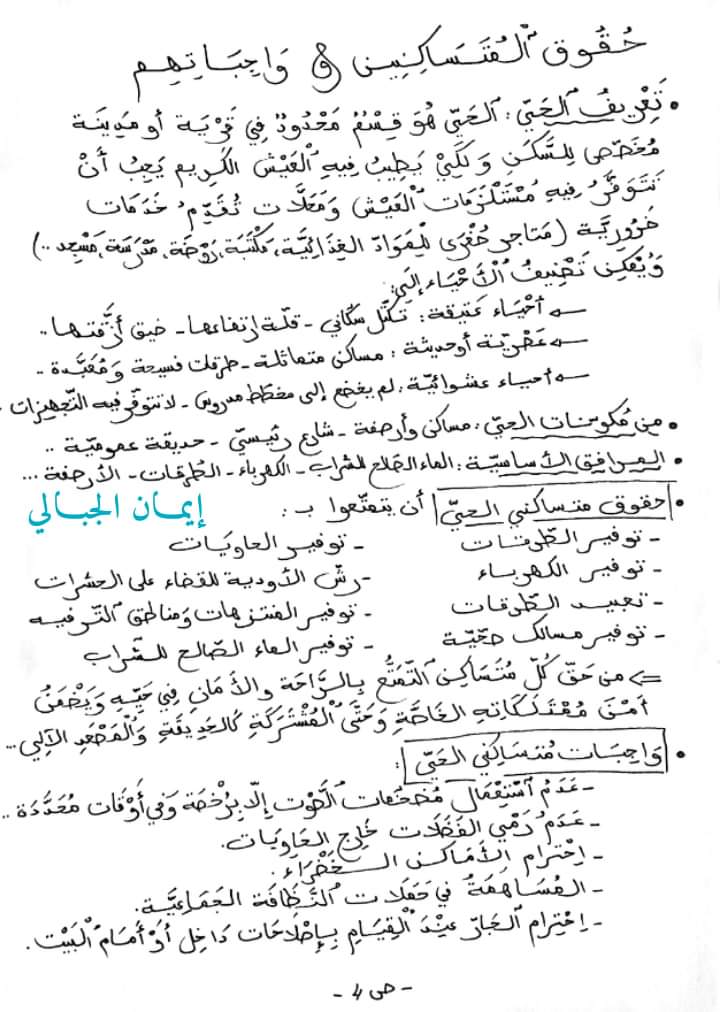 حُقُوق الْمُتَسَاكِنِين و وَاجِبَاتِهِم
• تَعْرِيفُ الحَيّ : الحَيّ هُوَ قِسْمٌ مَحْدُودٌ فِي قَرْيَة أو مَدِينَة
مُخَصَّص لِلسَّكَن وَلِكَيْ يَطِيبُ فِيهِ الْعَيْش الكَرِيم يَجِبُ أَنْ
تَتَوَفَّرُ فِيهِ مُسْتَلْزَمَات الْعَيْش وَمَحَلَّات تُقَدِّمُ خَدَمَات
ضَرُورِيَّة (مَتَاجِر صُغْرَى لِلْمَوَادّ الغِذَائِيَّة، مَكْتَبَة، رَوْضَة، مَدْرَسَة، مَسْجِد ..)
وَيُمْكِن تَصْنِيفُ الْأَحْيَاء إِلَى:
← أَحْيَاء عَتِيقَة : تكتّل سكّاني - قلّة ارتفاعها - ضيق أزقّتها ..
← عَصْرِيّة أو حديثة : مساكن متماثلة - طرقات فسيحة وَمُعَبَّدة ..
← أحياء عشوائيّة : لم يخضع إلى مخطّط مدروس - لا تتوفّر فيه التّجهيزات -
• من مُكوّنات الحيّ : مساكن وأرصفة - شارع رئيسيّ - حديقة عموميّة ..
• المرافق الأساسيّة : الماء الصّالح للشراب - الكهرباء - الطّرقات - الأرصفة ...
• حقوق متساكني الحيّ أن يتمتّعوا بـ :
إيمان الجبالي
- توفير الطّرقات - توفير الحاويات
- توفير الكهرباء - رشّ الأدوية للقضاء على الحشرات
- تعبيد الطّرقات - توفير المنتزهات ومناطق التّرفيه
- توفير مسالك صحّيّة - توفير الماء الصّالح للشّراب
⇐ من حَقّ كُلّ مُتَسَاكِن التَّمَتُّعُ بِالرَّاحَة والأَمَان فِي حَيِّهِ وَيَضْمَنُ
أَمْنَ مُمْتَلَكَاتِهِ الخَاصَّةِ وَحَتَّى الْمُشْتَرَكَةِ كَالحَدِيقَةِ وَالْمَصْعَدِ الآلِي ...
• وَاجِبَات مُتَسَاكِنِي الحَيّ :
- عَدَمُ اسْتِعْمَال مُضَخّمَات الصَّوْت إِلّا بِرُخْصَة وَفِي أَوْقَات مُحَدَّدَة ..
- عَدَمُ رَمْي الفَضَلَات خَارِج الحَاوِيَات.
- اِحْتِرَام الأَمَاكِن الخَضْرَاء.
- المُسَاهَمَةُ فِي حَمَلَات النَّظَافَة الجَمَاعِيَّة.
- اِحْتِرَام الجَار عِنْدَ القِيَام بِإِصْلَاحَات دَاخِل أَوْ أَمَام الْبَيْت.
- ص 4 -